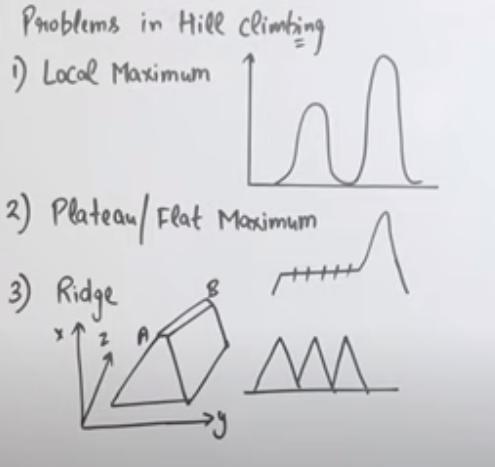 Problems in Hill climbing
1) Local Maximum
2) Plateau/ Flat Maximum
3) Ridge
B
A
x
z
y